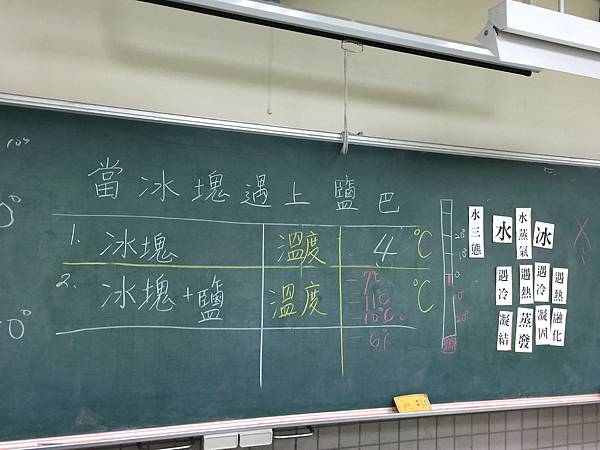 當冰塊遇上鹽巴
1. 冰塊 溫度 4 ℃
2. 冰塊+鹽 溫度 ℃
-7℃
-11℃
-10℃
20°
10°
0
10°
20°
水三態
水
水蒸氣
冰
遇冷 遇熱 遇冷 遇熱
凝結 蒸發 凝固 融化